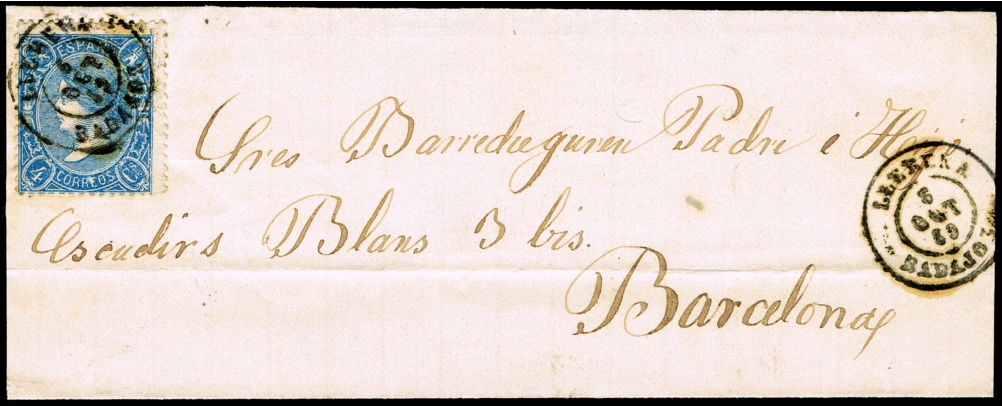 ESPAÑA
4 CORREOS Cs
LLERENA 5 OCT 69 BADAJOZ
Sres Barredieguren Padre é Hijo
Escudirs Blans 3 bis.
Barcelona
LLERENA
5
OCT
69
BADAJOZ